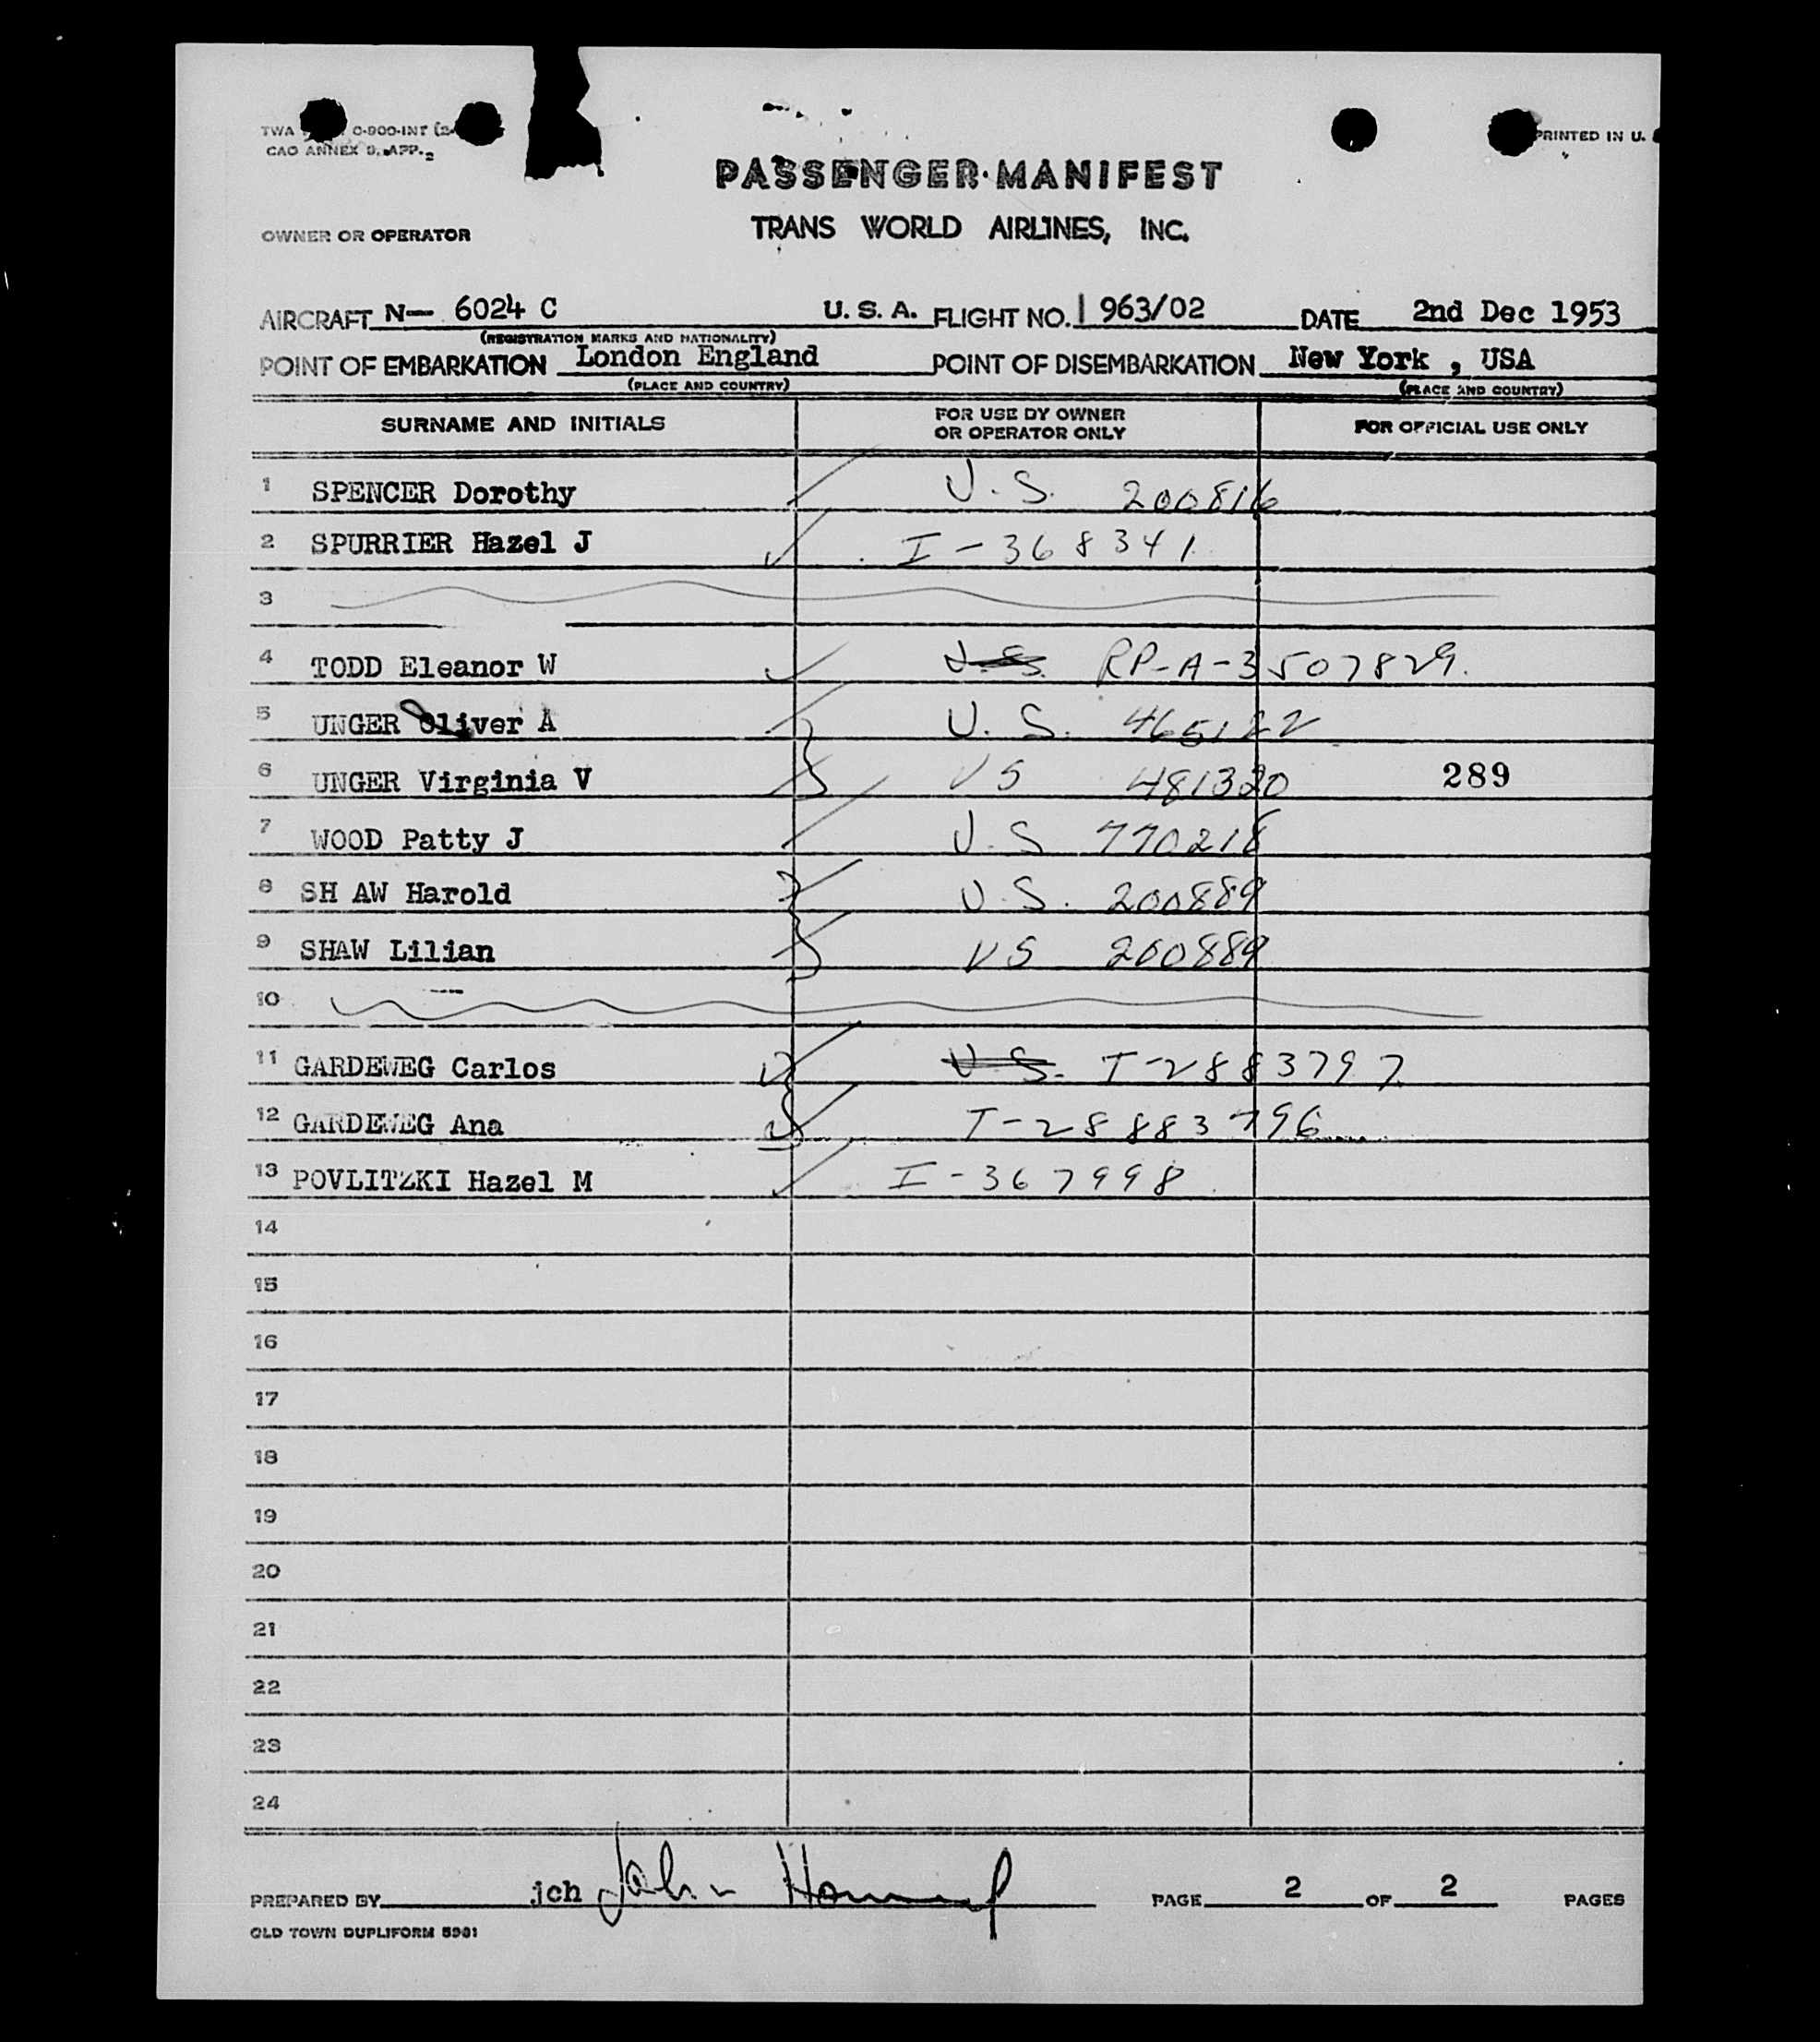 TWA C-900-INT (2-
CAO ANNEX 9, APP. 2
PRINTED IN U.
PASSENGER MANIFEST
TRANS WORLD AIRLINES, INC.
OWNER OR OPERATOR
AIRCRAFT N— 6024 C U. S. A. FLIGHT NO. 963/02 DATE 2nd Dec 1953
(REGISTRATION MARKS AND NATIONALITY)
POINT OF EMBARKATION London England POINT OF DISEMBARKATION New York , USA
(PLACE AND COUNTRY) (PLACE AND COUNTRY)
SURNAME AND INITIALS FOR USE BY OWNER OR OPERATOR ONLY FOR OFFICIAL USE ONLY
1 SPENCER Dorothy U.S. 200816
2 SPURRIER Hazel J I-368341
3
4 TODD Eleanor W U.S. RP-A-3507829.
5 UNGER Oliver A U.S. 465122
6 UNGER Virginia V US 481320 289
7 WOOD Patty J U.S 770218
8 SH AW Harold U.S. 200889
9 SHAW Lilian US 200889
10
11 GARDEWEG Carlos U.S. T-2883797
12 GARDEWEG Ana T-28883796
13 POVLITZKI Hazel M I-367998
14
15
16
17
18
19
20
21
22
23
24
PREPARED BY jch John PAGE 2 OF 2 PAGES
OLD TOWN DUPLIFORM 5981